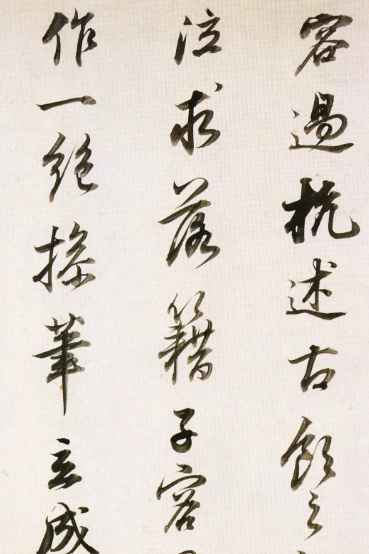 容過杭述古飲之
泣求落籍子容
作一絕操筆立成